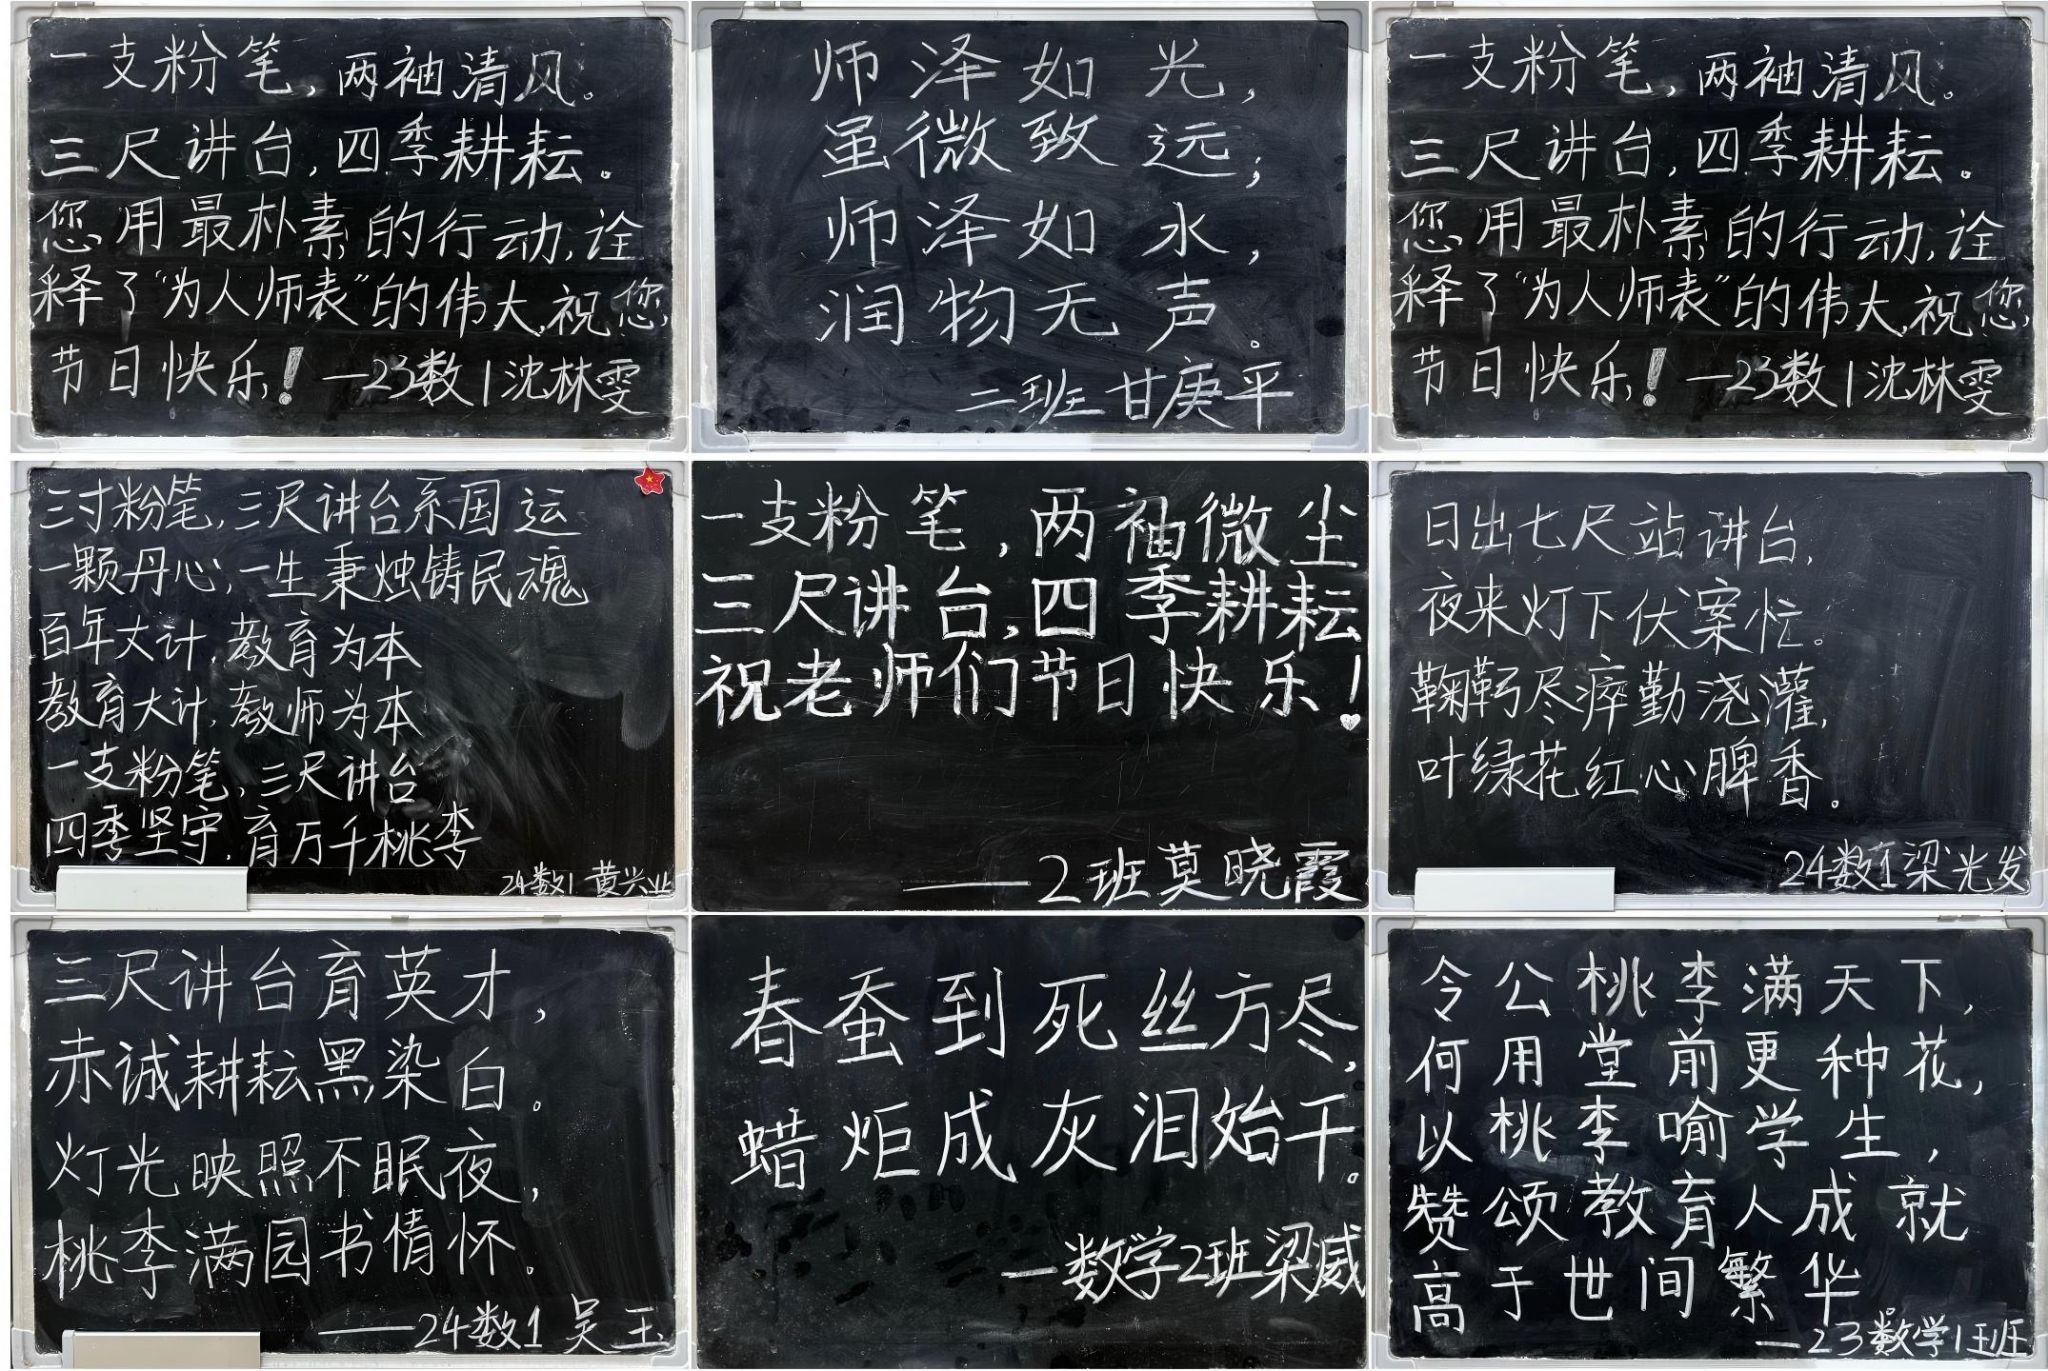 一支粉笔,两袖清风。
三尺讲台,四季耕耘。
您用最朴素的行动,诠
释了“为人师表”的伟大,祝您
节日快乐!—23数1沈林雯
师泽如光,
虽微致远;
师泽如水,
润物无声。
二班甘庚平
一支粉笔,两袖清风。
三尺讲台,四季耕耘。
您用最朴素的行动,诠
释了“为人师表”的伟大,祝您
节日快乐!—23数1沈林雯
三寸粉笔,三尺讲台系国运
一颗丹心,一生秉烛铸民魂
百年大计,教育为本
教育大计,教师为本
一支粉笔,三尺讲台
四季坚守,育万千桃李
24数1 黄兴业
一支粉笔,两袖微尘
三尺讲台,四季耕耘
祝老师们节日快乐!
——2班莫晓霞
日出七尺站讲台,
夜来灯下伏案忙。
鞠躬尽瘁勤浇灌,
叶绿花红心脾香。
24数1梁光发
三尺讲台育英才,
赤诚耕耘黑染白。
灯光映照不眠夜,
桃李满园书情怀。
——24数1 吴玉
春蚕到死丝方尽,
蜡炬成灰泪始干。
—数学2班梁威
令公桃李满天下,
何用堂前更种花,
以桃李喻学生,
赞颂教育人成就
高于世间繁华。
—23数学1班